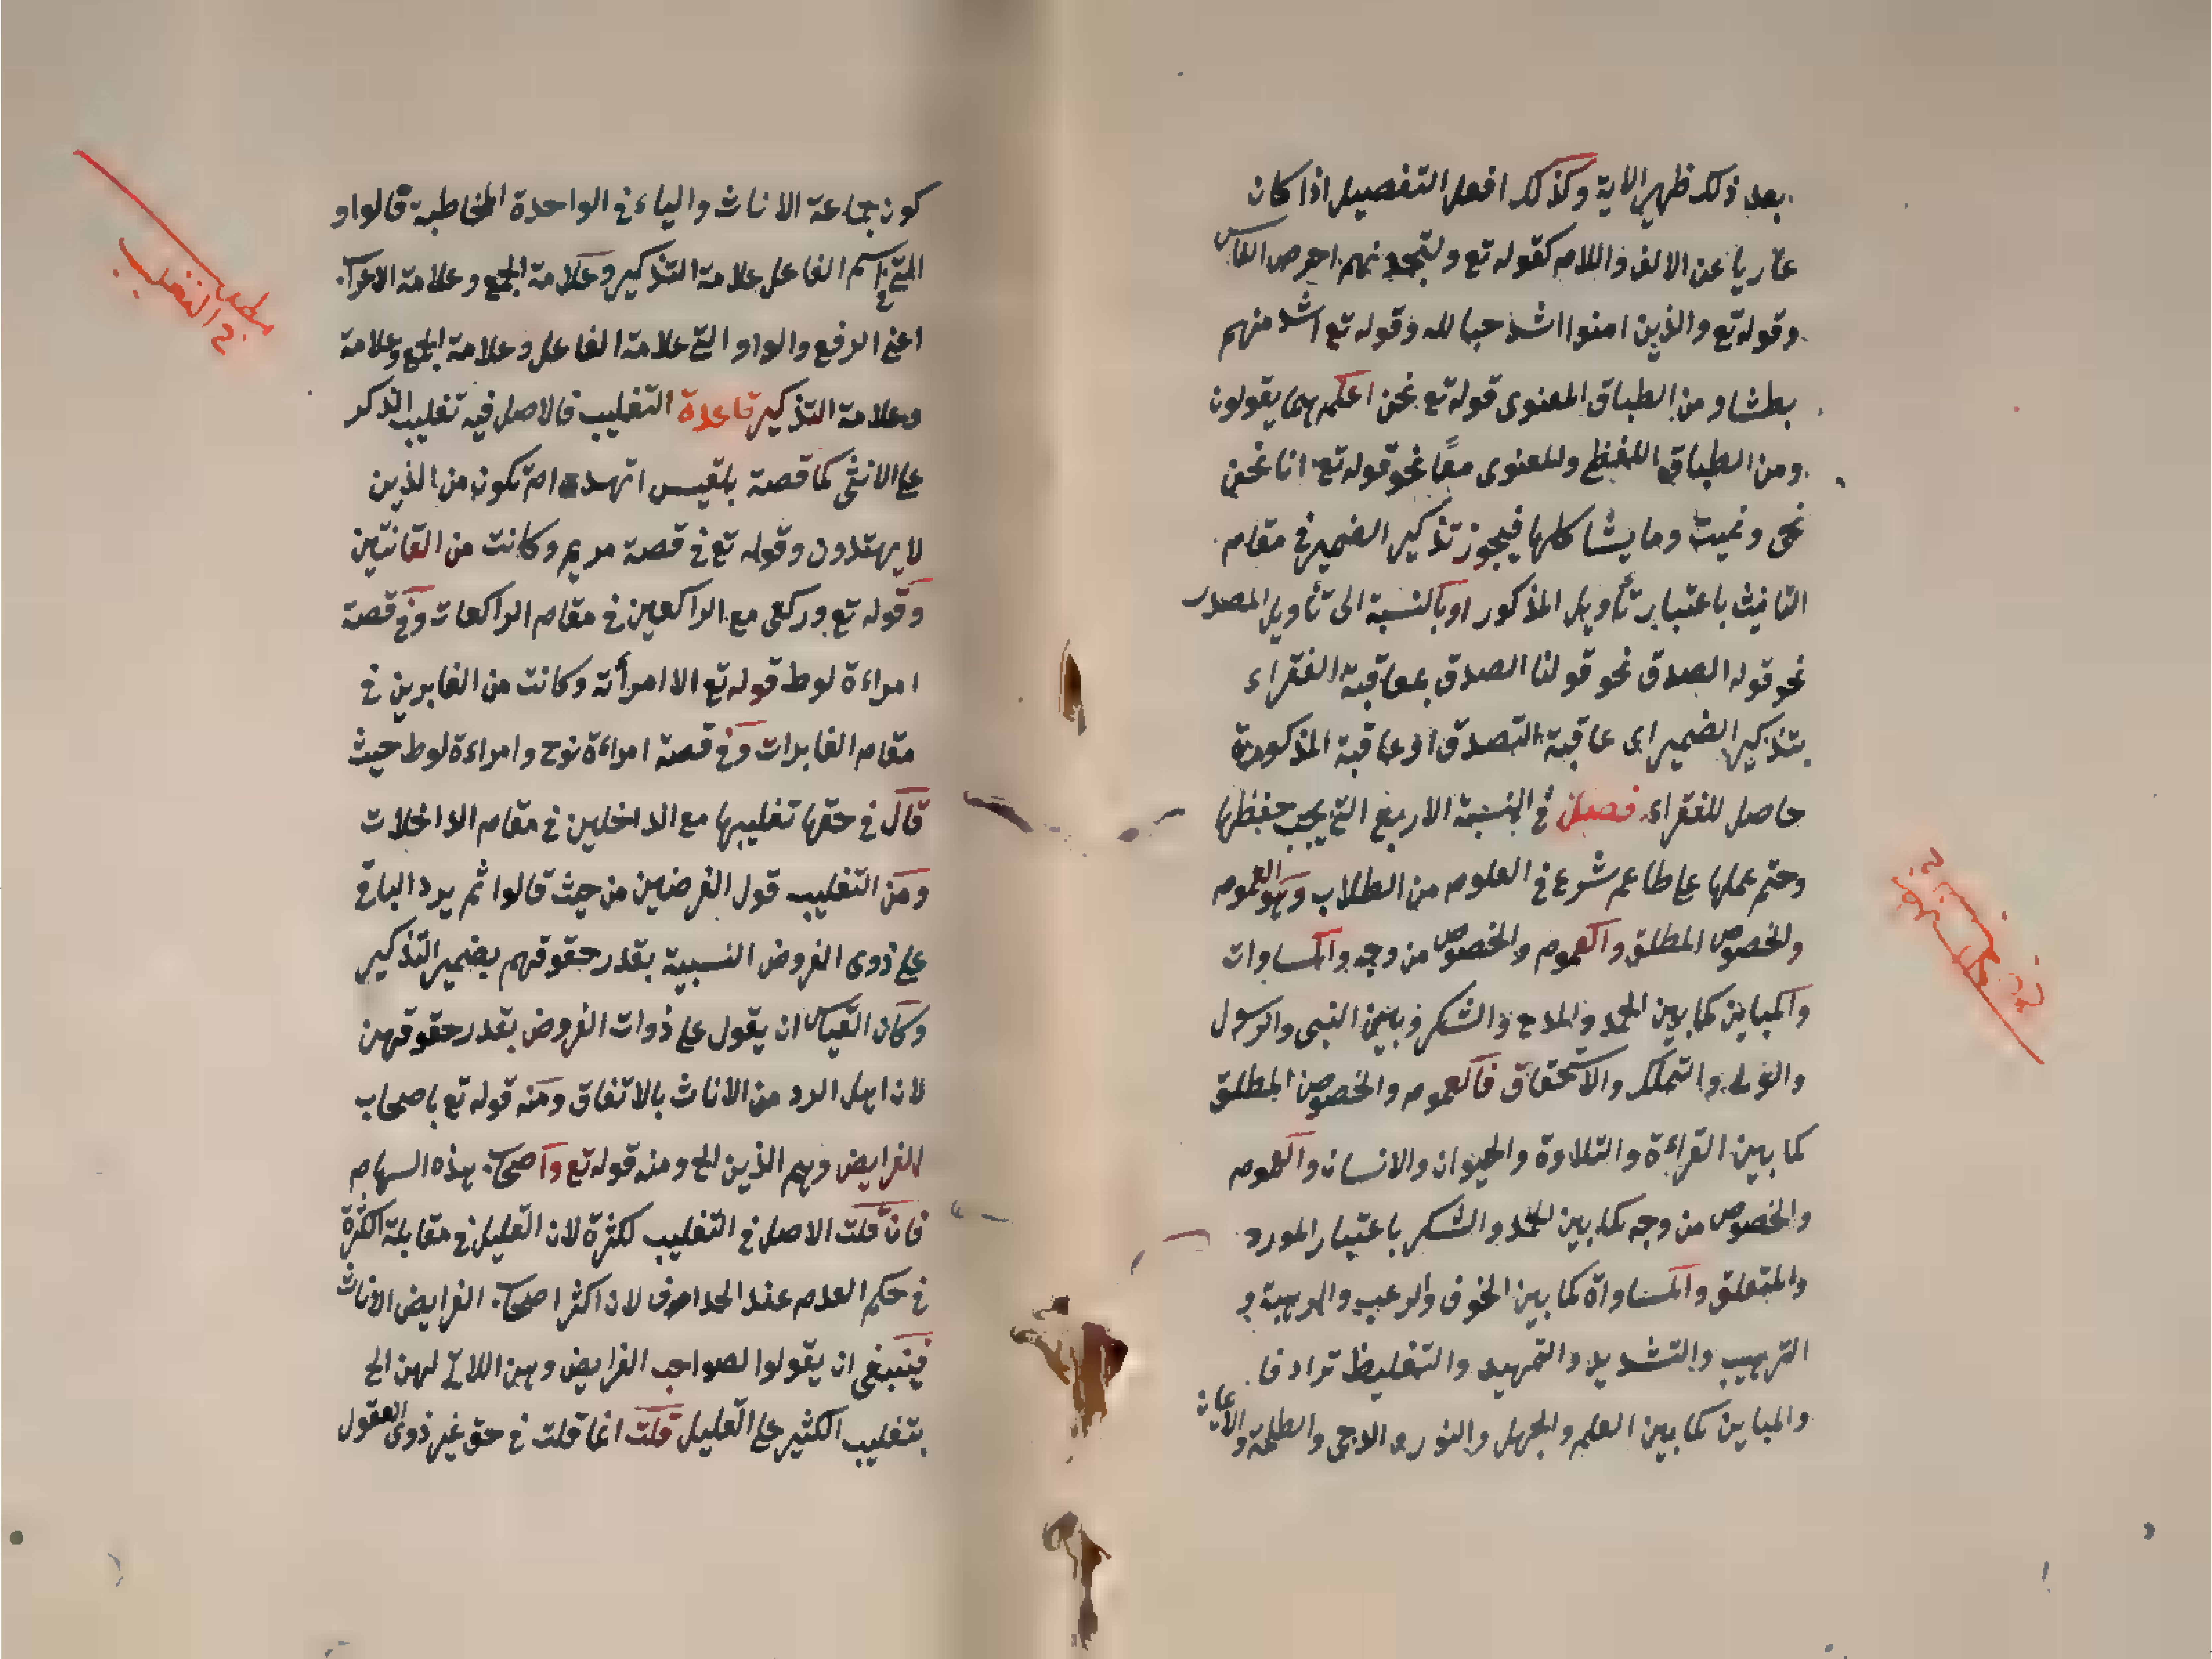 بعد ذلك ظهير الاية وكذلك افعل التفصيل اذا كان
عاريا عن الالف واللام كقوله تع ولتجدنهم احرص الناس
وقوله تع والذين امنوا اشد حبا لله وقوله تع اشد منهم
بطشا ومن الطباق المعنوى قوله تع نحن اعلم بما يقولون
ومن الطباق اللفظى والمعنوى معًا نحو قوله تع انا نحن
نحى ونميت وما يشاكلها فيجوز تذكير الضمير في مقام
التانيث باعتبار تأويل المذكور او بالنسبة الى تأويل المصدر
نحو قوله الصدق نحو قولنا الصدق بعاقبة الفقراء
بتذكير الضمير اى عاقبة التصدق او عاقبة المذكورة
حاصل للفقراء فصل في النسبة الاربع التى يجب حفظها
وحتم عملها على طاعم شرع في العلوم من الطلاب وهو العموم
والخصوص المطلق والعموم والخصوص من وجه والمساوات
والمباين كما بين الحمد والمدح والشكر وبين النبى والرسول
والولى والتملك والاستحقاق فالعموم والخصوص المطلق
كما بين القراءة والتلاوة والحيوان والانسان والعموم
والخصوص من وجه كما بين الحمد والشكر باعتبار المورد
والمتعلق والمساواة كما بين الخوف والرعب والرهبة و
الترهيب والتشديد والتمهيد والتغليظ ترادفا
والمباين كما بين العلم والجهل والنور والدجى والظلمة و
كون جماعة الاناث والياء في الواحدة المخاطبة قالوا و
التى في اسم الفاعل علامة التذكير وعلامة الجمع وعلامة الاعراب
اعنى الرفع والواو التى علامة الفاعل وعلامة الجمع وعلامة
وعلامة التذكير قاعدة التغليب فالاصل فيه تغليب الذكر
على الانثى كما قصة بلقيس اتهتدى ام تكون من الذين
لا يهتدون وقوله تع في قصة مريم وكانت من القانتين
وقوله تع وركعى مع الراكعين في مقام الراكعات وفي قصة
امراءة لوط قوله تع الا امرأته وكانت من الغابرين في
مقام الغابرات وفي قصة امراءة نوح وامراءة لوط حيث
قال في حقها تغليبها مع الداخلين في مقام الداخلات
ومن التغليب قول الفرضيين من حيث قالوا ثم يرد الباقى
على ذوى الفروض النسبية بقدر حقوقهم بضمير التذكير
وكان القياس ان يقول على ذوات الفروض بقدر حقوقهن
لان اهل الرد من الاناث بالاتفاق ومنه قوله تع باصحاب
الفرايض وهم الذين الخ ومنه قوله تع واصحاب هذه السهام
فان قلت الاصل في التغليب لكثرة لان القليل في مقابلة الكثرة
في حكم العدم عند الحد لان اكثر اصحاب الفرايض الاناث
فينبغى ان يقولوا لصواحب الفرايض وهن اللاتى لهن الخ
بتغليب الكثير على القليل قلت انما قلت في حق غير ذوى العقول
مطلب
في التغليب